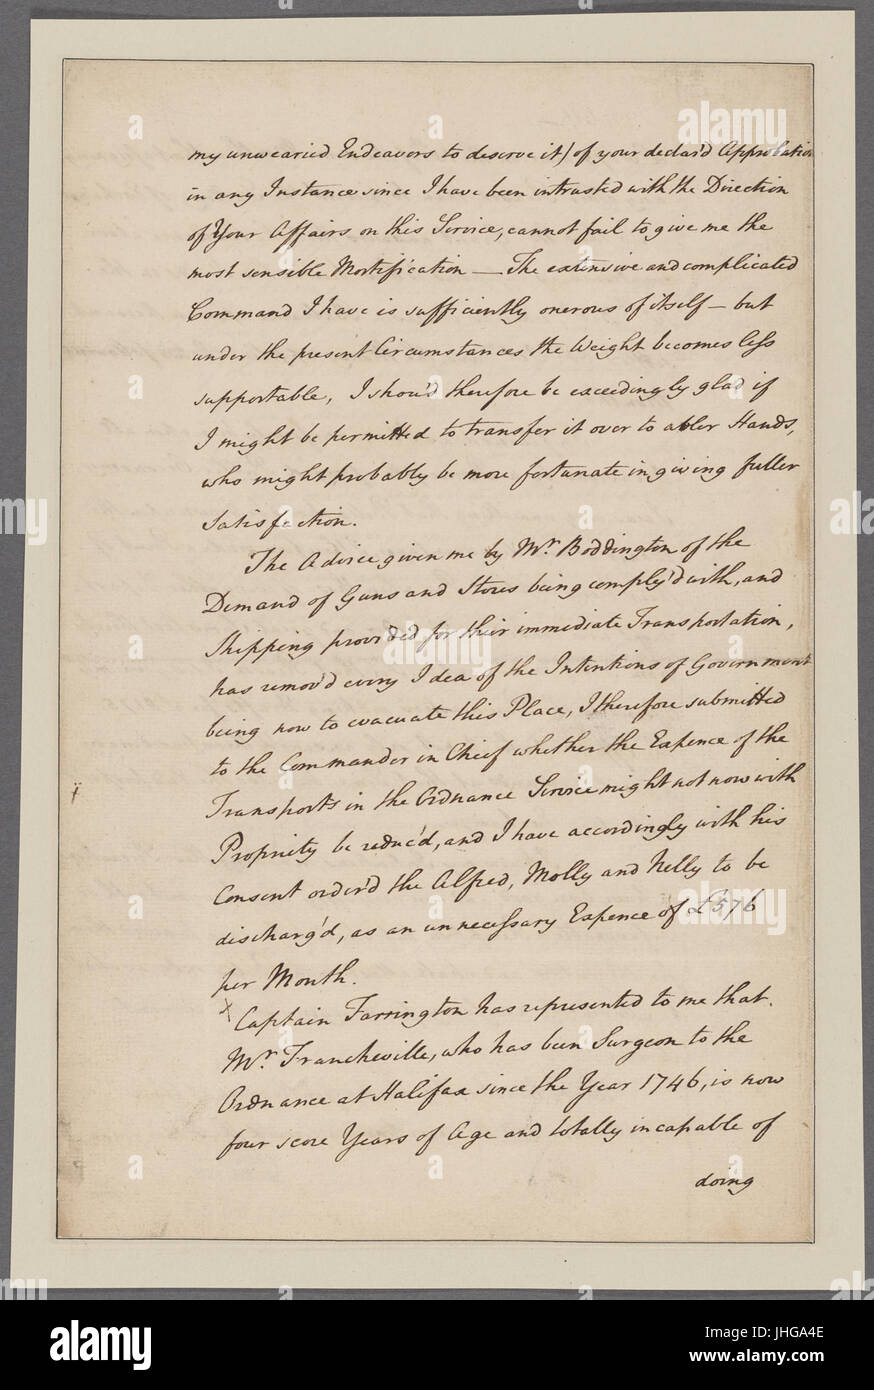 my unwearied Endeavors to deserve it) of your declar'd Approbation
in any Instance since I have been intrusted with the Direction
of Your Affairs on this Service, cannot fail to give me the
most sensible Mortification — The extensive and complicated
Command I have is sufficiently onerous of itself — but
under the present Circumstances the Weight becomes less
supportable, I shou'd therefore be exceedingly glad if
I might be permitted to transfer it over to abler Hands,
who might probably be more fortunate in giving fuller
Satisfaction.
The Advice given me by Mr. Boddington of the
Demand of Guns and Stores being comply'd with, and
Shipping provided for their immediate Transportation,
has remov'd every Idea of the Intentions of Government
being now to evacuate this Place, I therefore submitted
to the Commander in Chief whether the Expence of the
Transports in the Ordnance Service might not now with
Propriety be reduc'd, and I have accordingly with his
Consent order'd the Alfred, Molly and Nelly to be
discharg'd, as an unnecessary Expence of £576
per Month.
x Captain Farrington has represented to me that
Mr. Francheville, who has been Surgeon to the
Ordnance at Halifax since the Year 1746, is now
four score Years of Age and totally incapable of
doing
alamy stock photo
JHGA4E
www.alamy.com